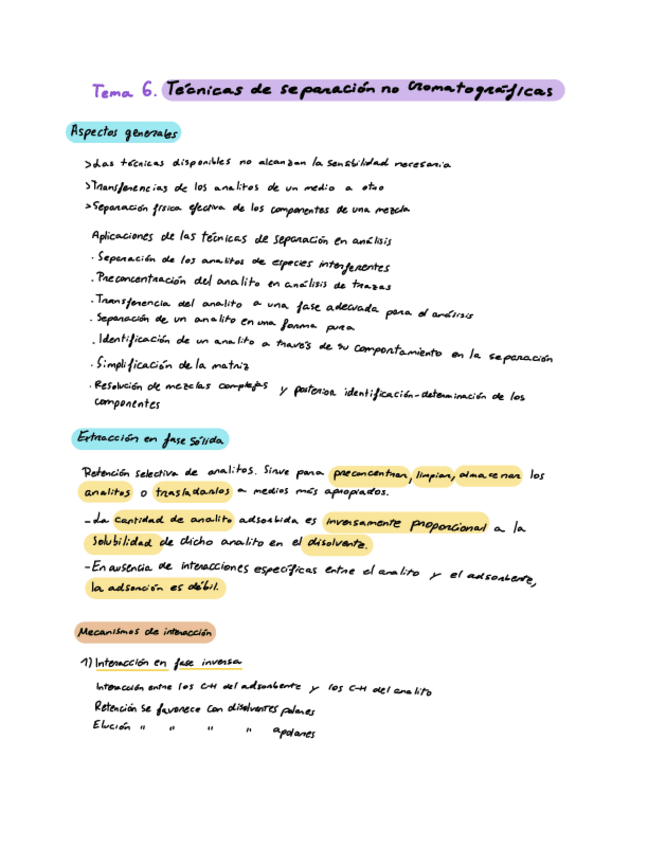 Tema 6. Técnicas de separación no cromatográficas
Aspectos generales
>Las técnicas disponibles no alcanzan la sensibilidad necesaria
>Transferencias de los analitos de un medio a otro
>Separación física efectiva de los componentes de una mezcla
Aplicaciones de las técnicas de separación en análisis
. Separación de los analitos de especies interferentes
. Preconcentración del analito en análisis de trazas
. Transferencia del analito a una fase adecuada para el análisis
. Separación de un analito en una forma pura
. Identificación de un analito a través de su comportamiento en la separación
. Simplificación de la matriz
. Resolución de mezclas complejas y posterior identificación-determinación de los
componentes
Extracción en fase sólida
Retención selectiva de analitos. Sirve para preconcentrar, limpiar, almacenar los
analitos o trasladarlos a medios más apropiados.
-La cantidad de analito adsorbida es inversamente proporcional a la
solubilidad de dicho analito en el disolvente.
-En ausencia de interacciones específicas entre el analito y el adsorbente,
la adsorción es débil.
Mecanismos de interacción
1) Interacción en fase inversa
Interacción entre los C-H del adsorbente y los C-H del analito
Retención se favorece con disolventes polares
Elución " " " " apolares